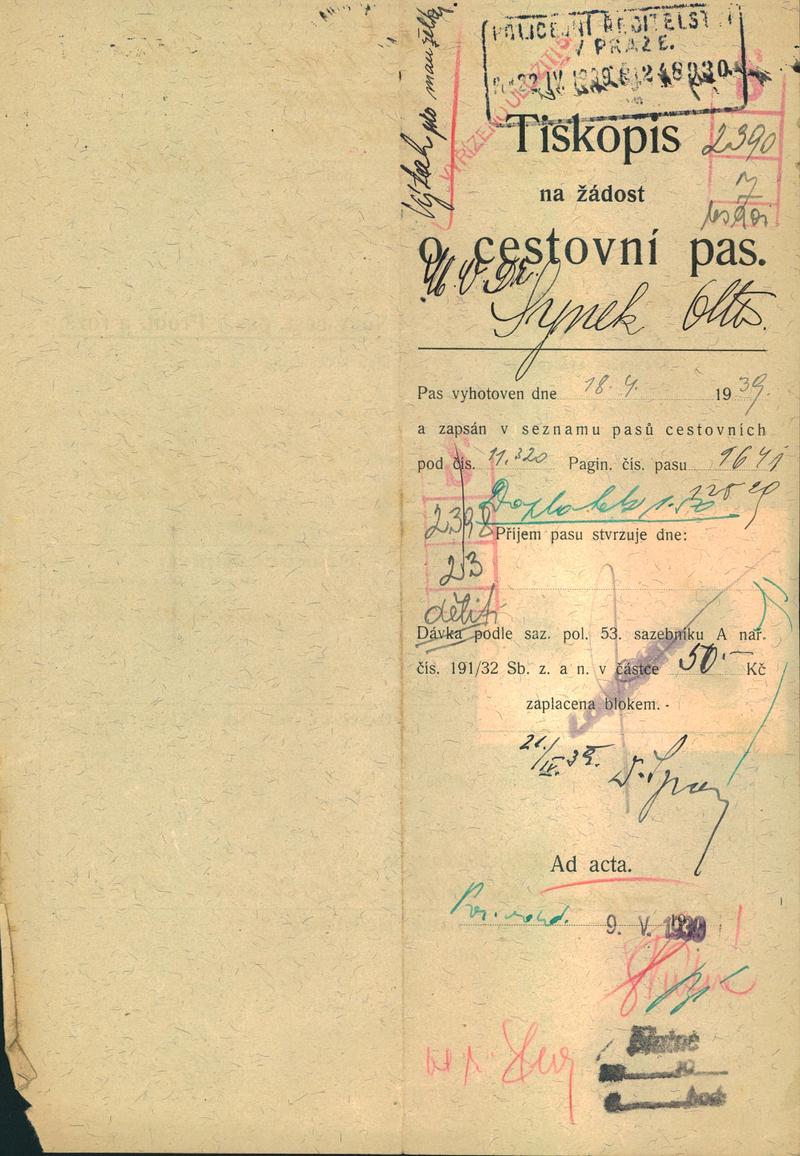 Výtah pro manželku
POLICEJNÍ ŘEDITELST
V PRAZE.
22 IV. 1939 248930
VYŘÍZENO ULOŽITI
S
2390
7
Tiskopis
na žádost
o cestovní pas.
M.U.Dr.
Synek Otto.
Pas vyhotoven dne 18. 4. 1939.
a zapsán v seznamu pasů cestovních
pod čís. 11.320 Pagin. čís. pasu 1641
Doplatek 1.50
S
2398
23
děliti
Příjem pasu stvrzuje dne:
Dávka podle saz. pol. 53. sazebníku A nař.
čís. 191/32 Sb. z. a n. v částce 50.- Kč
zaplacena blokem. -
21/IV. 39.
Ad acta.
9. V. 1939